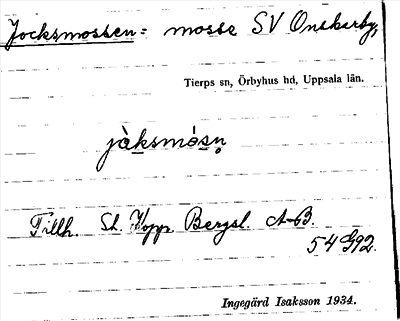 Jocksmossen: mosse SV Onskarby,
Tierps sn, Örbyhus hd, Uppsala län.
jàksmósn̥
Tillh. St. Kopp. Bergsl. A-B.
54 G92.
Ingegärd Isaksson 1934.